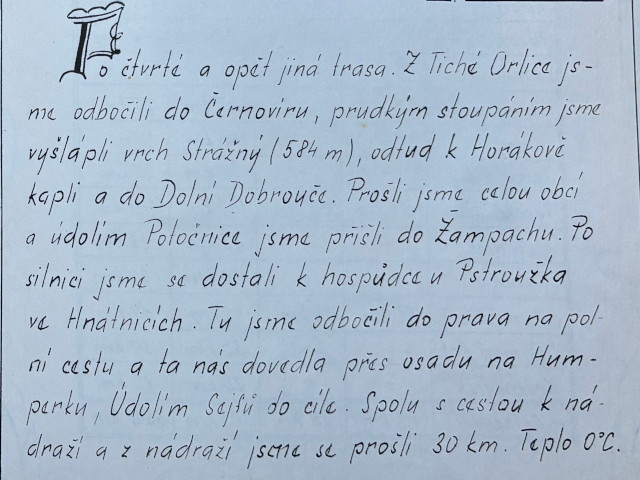 Po čtvrté a opět jiná trasa. Z Tiché Orlice js-
me odbočili do Černoviru, prudkým stoupáním jsme
vyšlápli vrch Strážný (584 m), odtud k Horákově
kapli a do Dolní Dobrouče. Prošli jsme celou obcí
a údolím Potočnice jsme přišli do Žampachu. Po
silnici jsme se dostali k hospůdce u Pstroužka
ve Hnátnicích. Tu jsme odbočili do prava na pol-
ní cestu a ta nás dovedla přes osadu na Hum-
perku, Údolím Sejfů do cíle. Spolu s cestou k ná-
draží a z nádraží jsme se prošli 30 km. Teplo 0°C.